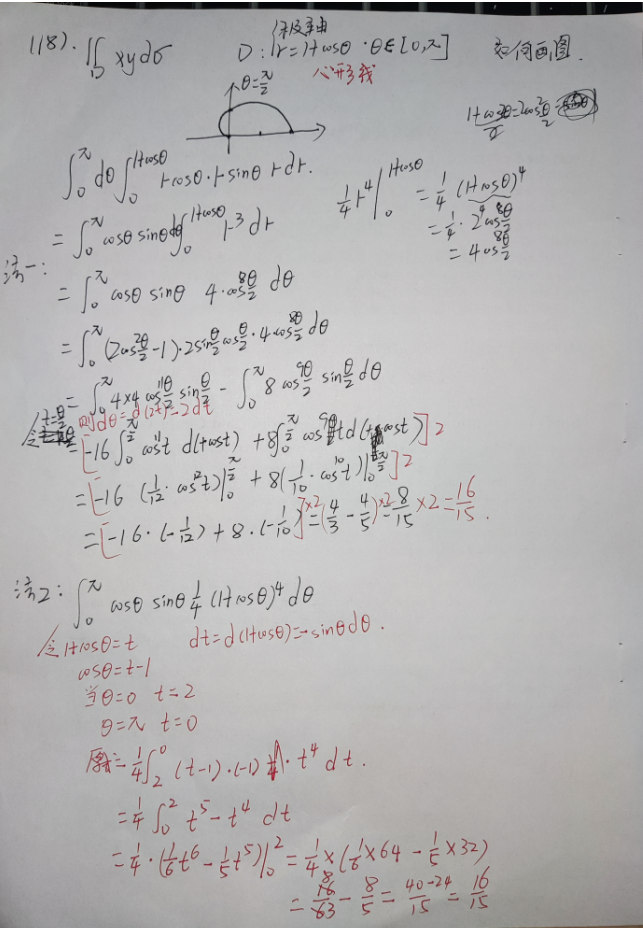 1(8). ∬_D xydσ D: 极轴 r=1+cosθ · θ∈[0,π] 如何画图.
心形线
θ=π/2
∫_0^π dθ ∫_0^{1+cosθ} rcosθ·r sinθ r dr.
1/4 r^4 |_0^{1+cosθ} = 1/4 (1+cosθ)^4
= 1/4 · 2^4 cos^8 θ/2
= 4cos^8 θ/2
= ∫_0^π cosθ sinθ dθ ∫_0^{1+cosθ} r^3 dr
法一:
= ∫_0^π cosθ sinθ 4·cos^8 θ/2 dθ
= ∫_0^π (2cos^2 θ/2 -1)·2sin θ/2 cos θ/2 · 4cos^8 θ/2 dθ
= ∫_0^π 4×4 cos^11 θ/2 sin θ/2 - ∫_0^π 8 cos^9 θ/2 sin θ/2 dθ
令 t=θ/2 则dθ=d(2t)=2dt
= [-16 ∫_0^{π/2} cos^11 t d(+cost) + 8∫_0^{π/2} cos^9 t d(+cost)]2
= [-16 (1/12 · cos^12 t)|_0^{π/2} + 8(1/10 · cos^10 t)|_0^{π/2}]2
= [-16·(-1/12) + 8·(-1/10)]×2 = (4/3 - 4/5)×2 = 8/15 ×2 = 16/15.
法2: ∫_0^π cosθ sinθ 1/4 (1+cosθ)^4 dθ
令1+cosθ=t dt=d(1+cosθ)=-sinθdθ.
cosθ=t-1
当θ=0 t=2
θ=π t=0
原式= 1/4 ∫_2^0 (t-1)·(-1)· t^4 dt.
= 1/4 ∫_0^2 t^5 - t^4 dt
= 1/4 · (1/6 t^6 - 1/5 t^5)|_0^2 = 1/4 × (1/6 ×64 - 1/5 ×32)
= 8/3 - 8/5 = 40-24/15 = 16/15